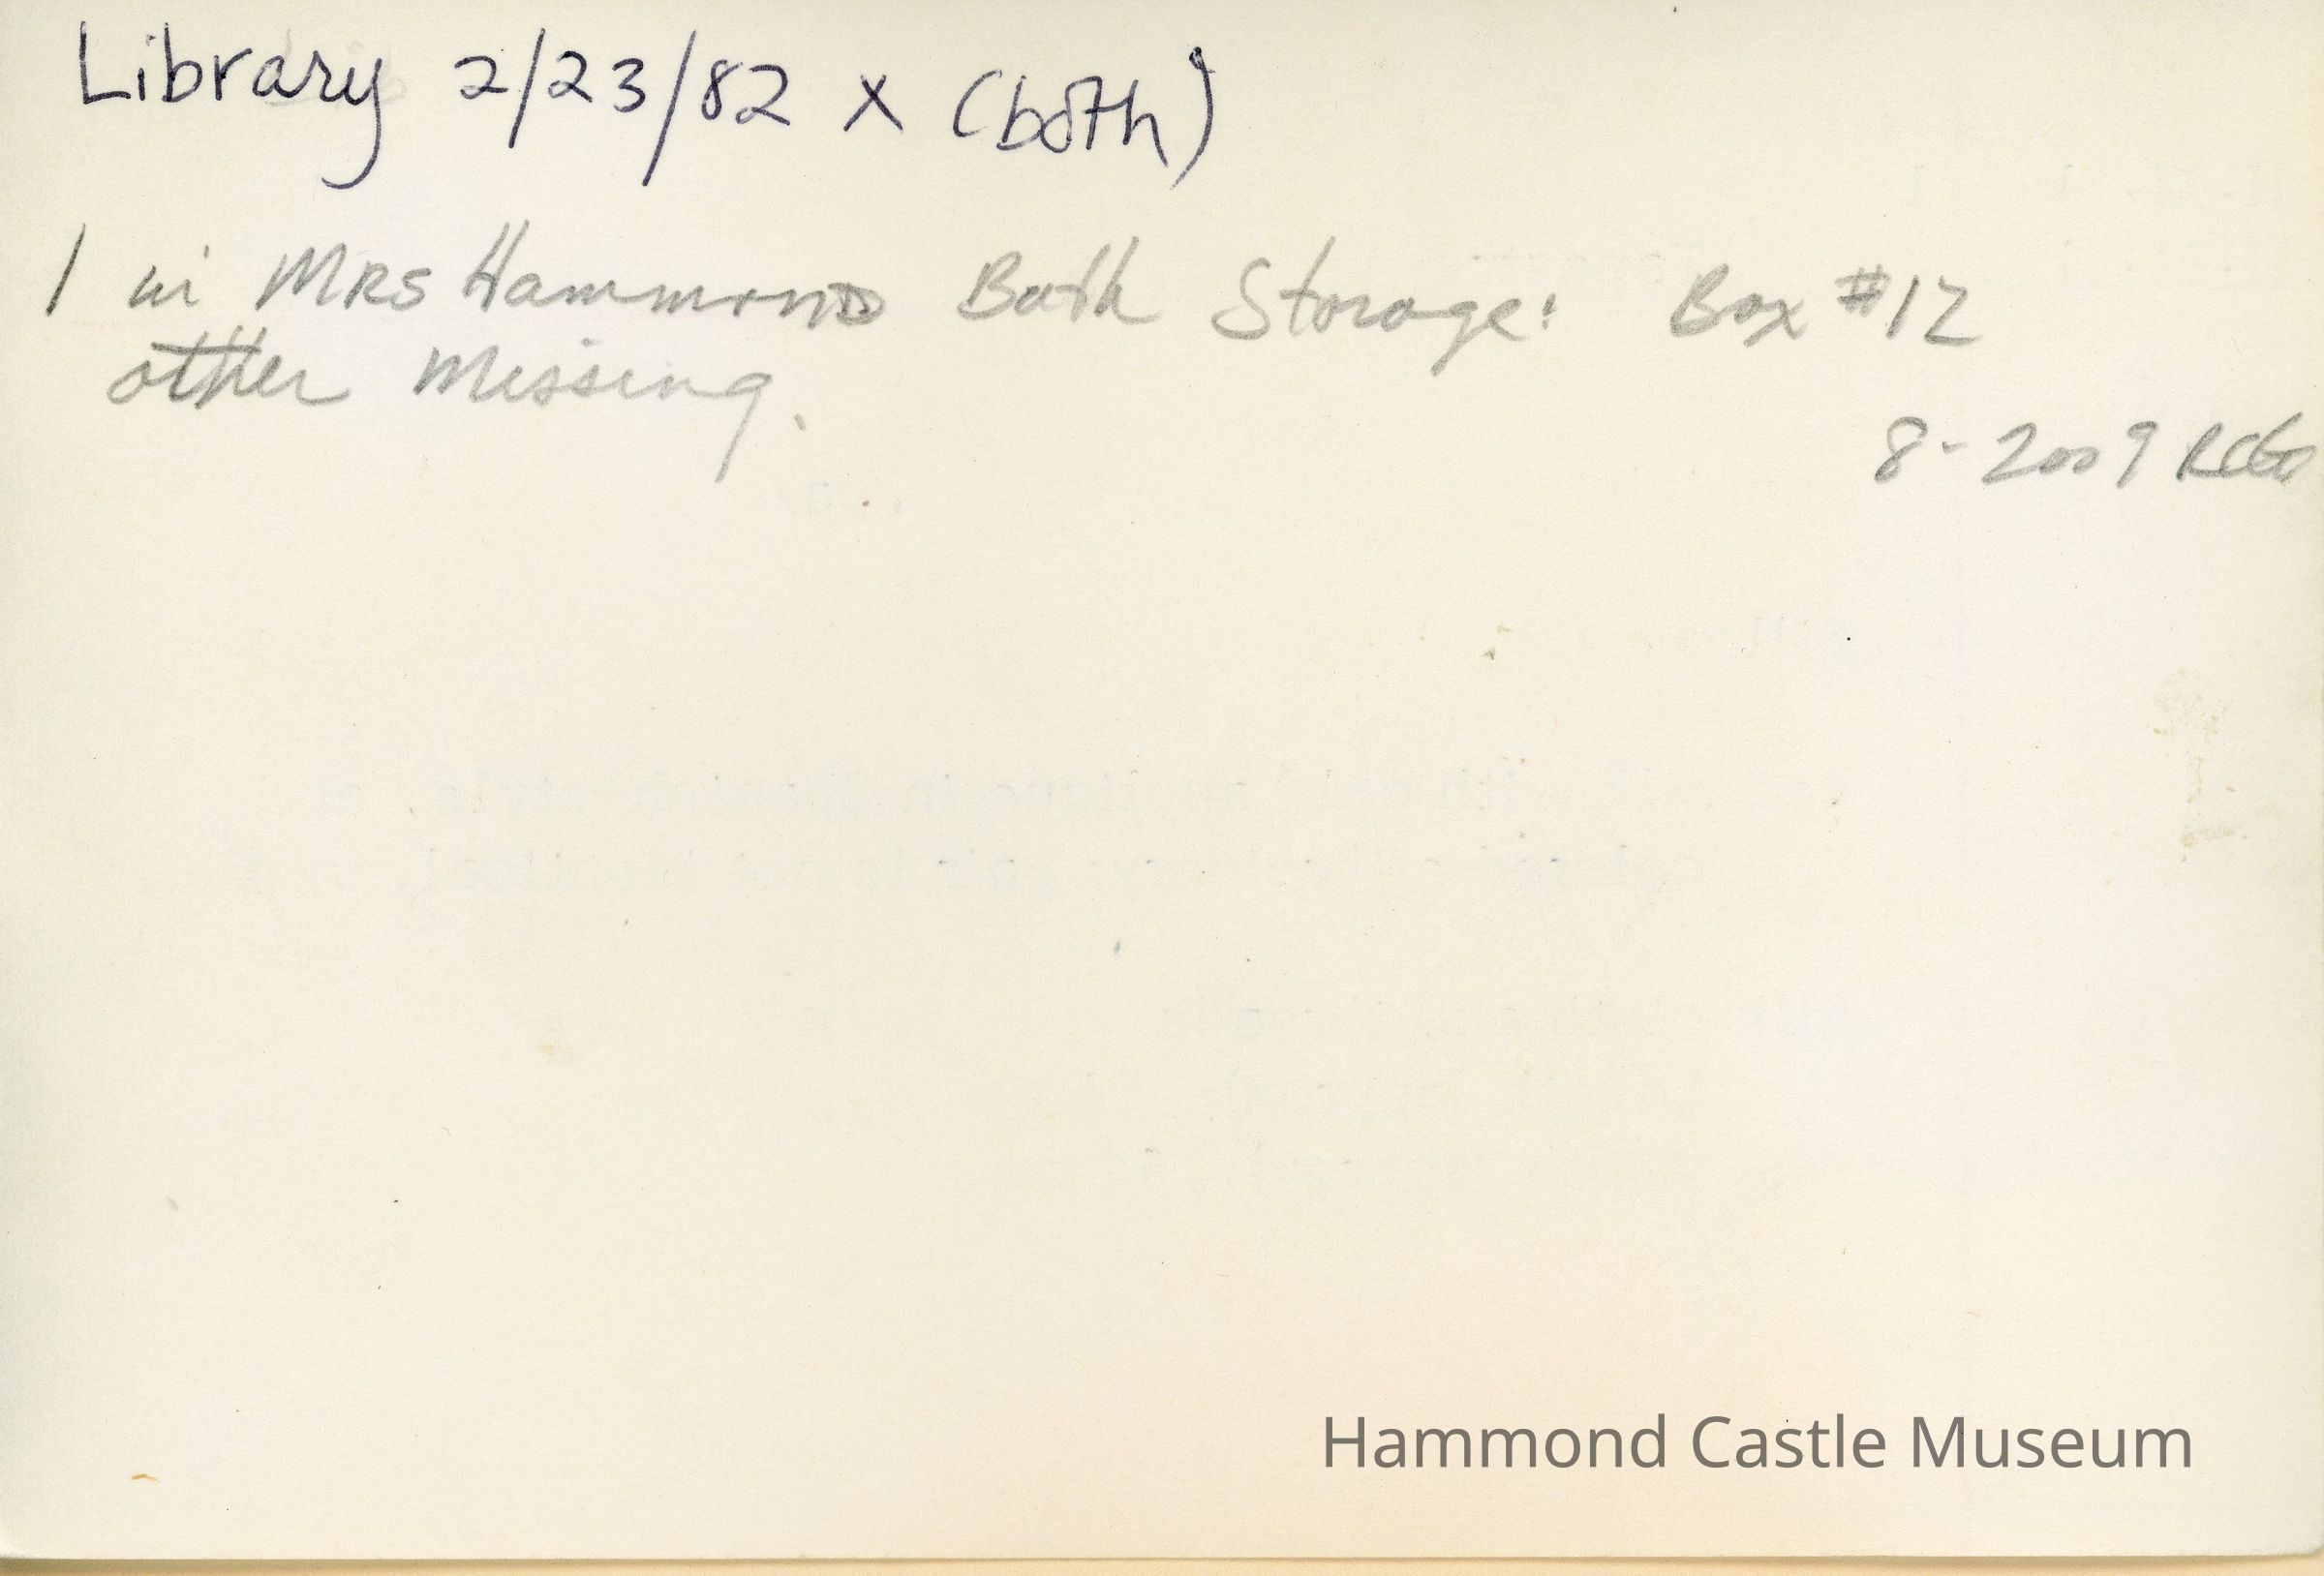 Library 2/23/82 x (both)
1 in MRS Hammond Bath Storage: Box #12
other Missing.
8-2009
Hammond Castle Museum